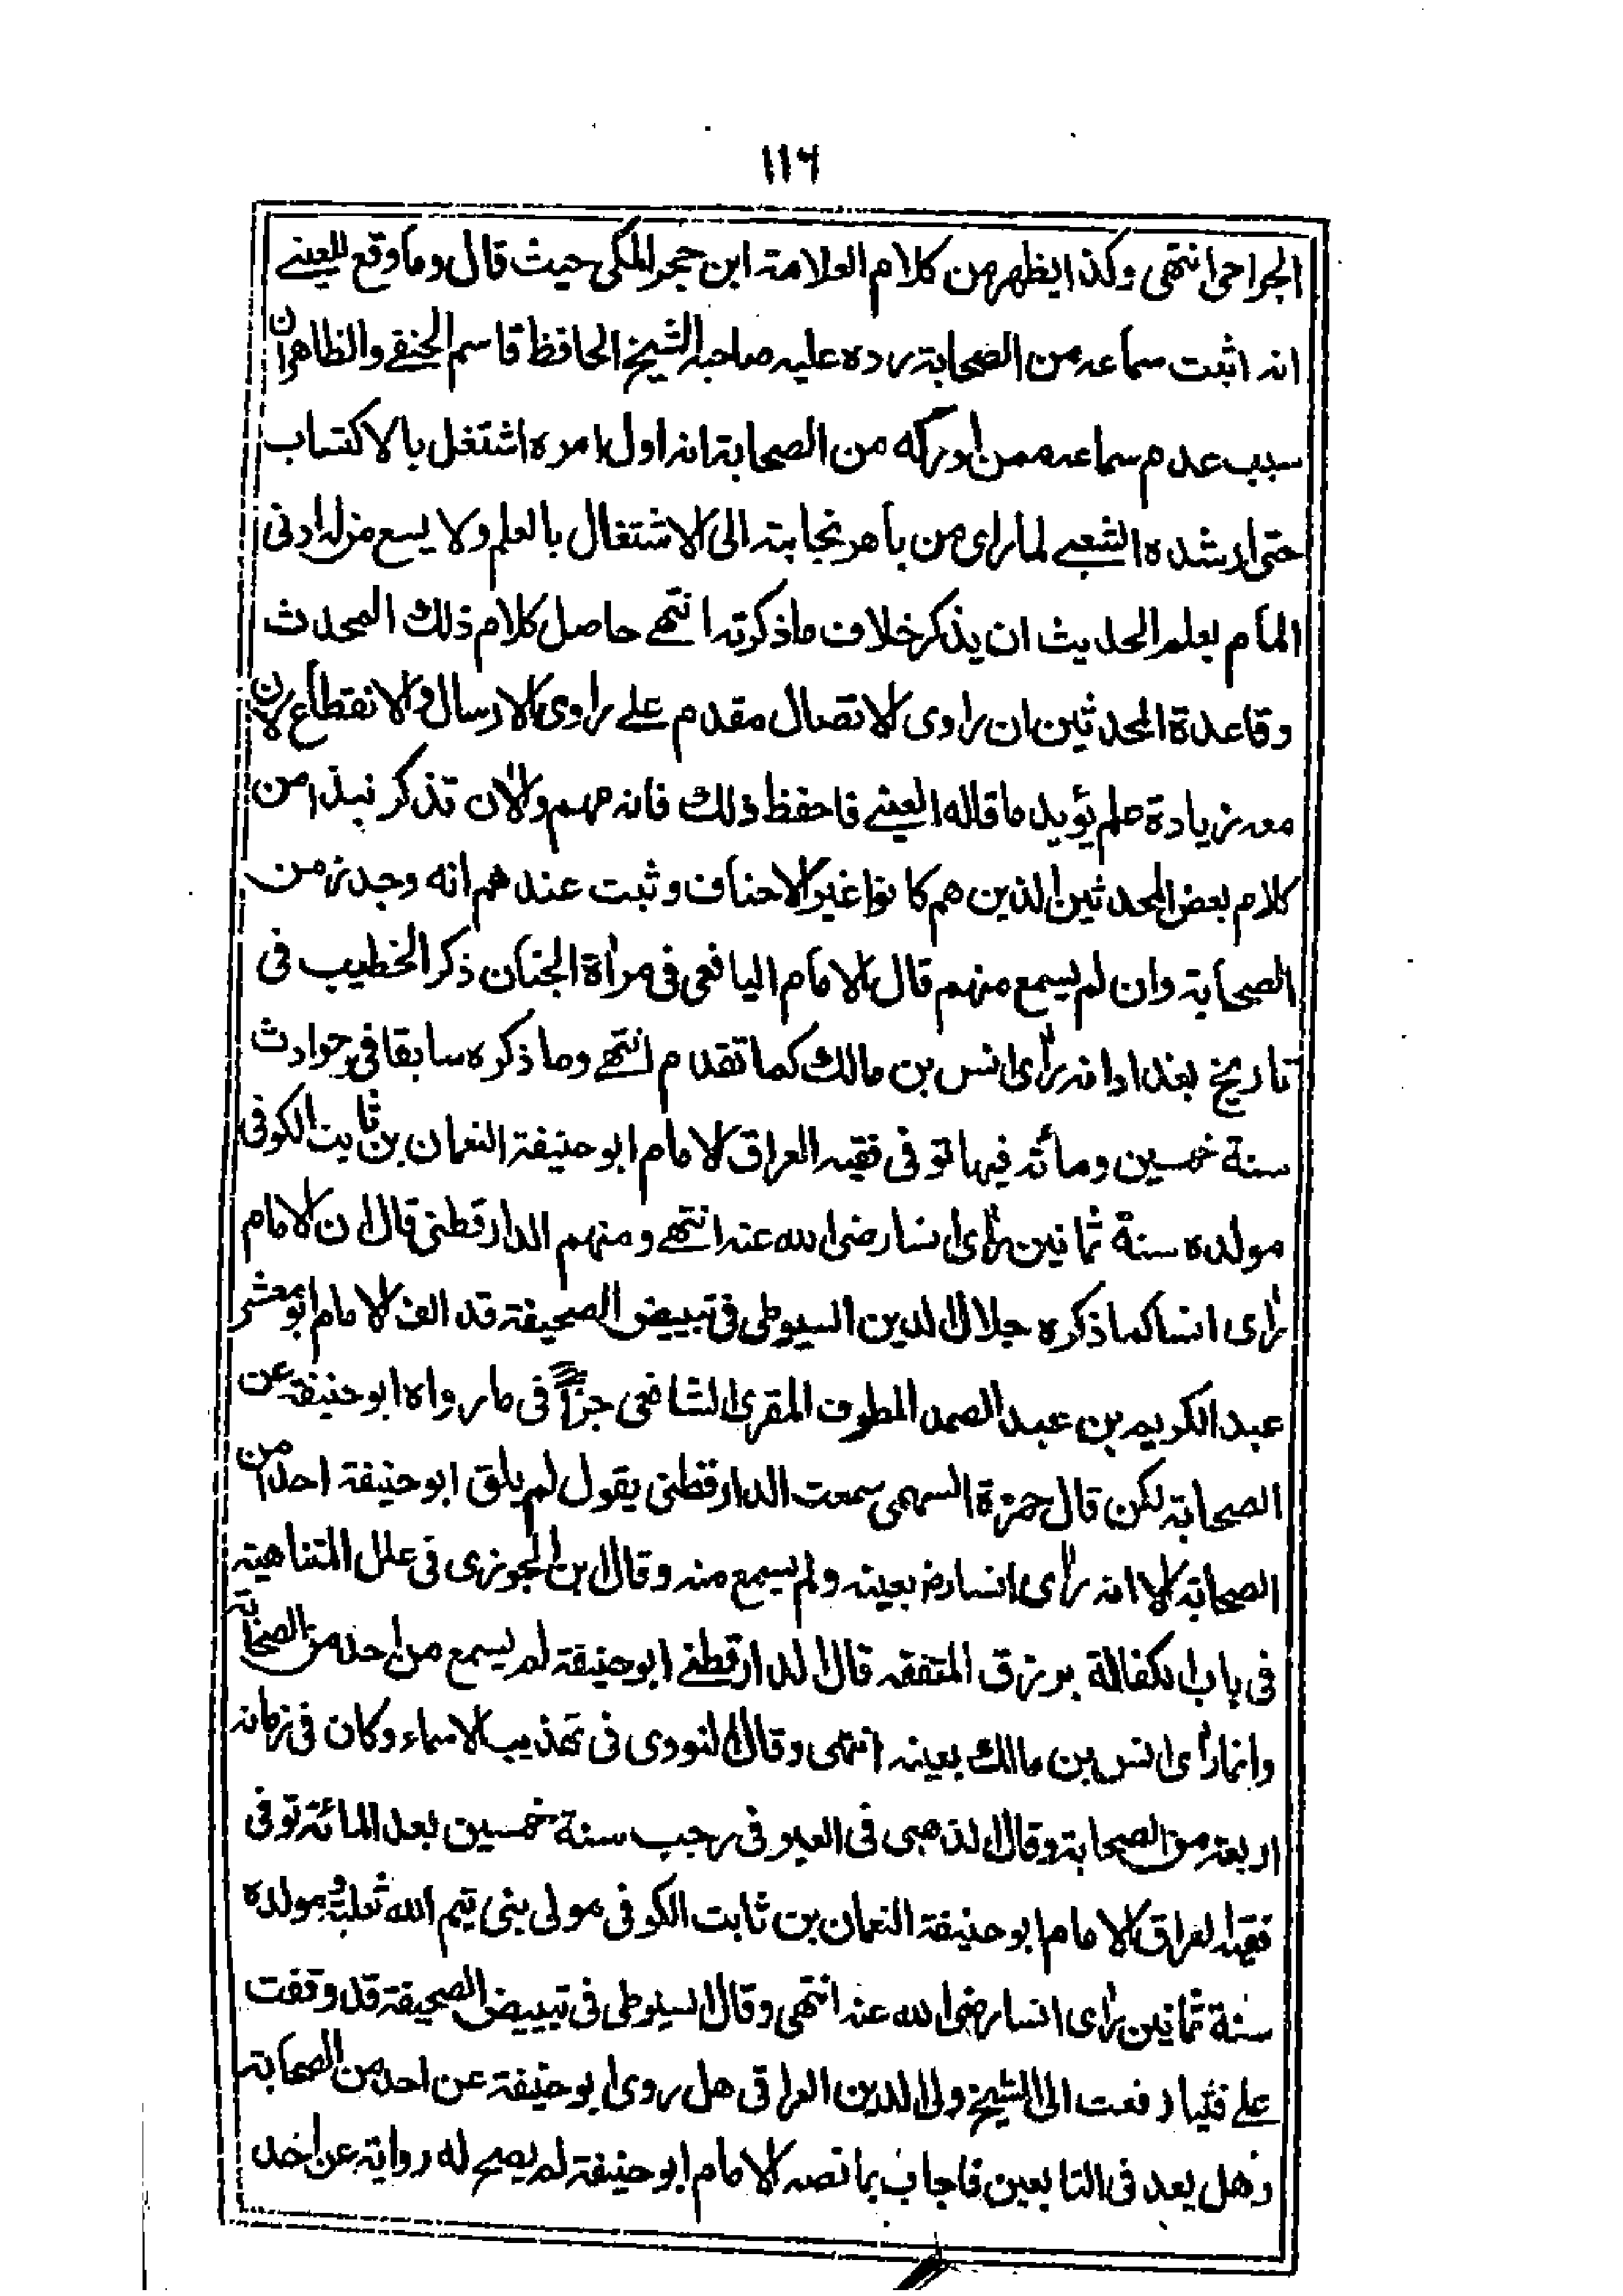 ١١٦
الجراحى انتهى وكذا يظهر من كلام العلامة ابن حجر المكى حيث قال وما وقع للعينے
انه اثبت سماعه من الصحابة رده عليه صاحبه الشيخ الحافظ قاسم الحنفے والظاهر ان
سبب عدم سماعه ممن ادركه من الصحابة انه اول امره اشتغل بالاكتساب
حتى ارشده الشعبے لما راى من باهر نجابته الى الاشتغال بالعلم ولا يسع من له ادنى
المام بعلم الحديث ان يذكر خلاف ماذكرته انتهے حاصل كلام ذلك المحدث
وقاعدة المحدثين ان راوى الاتصال مقدم علے راوى الارسال والانقطاع لان
معه زيادة علم يؤيد ما قاله العينے فاحفظ ذلك فانه مهم والان تذكر نبذا من
كلام بعض المحدثين الذين هم كانوا غير الاحناف وثبت عندهم انه وجد زمن
الصحابة وان لم يسمع منهم قال الامام اليافعى فى مرأة الجنان ذكر الخطيب فى
تاريخ بغداد انه رأى انس بن مالك كما تقدم انتهے وما ذكره سابقا فى حوادث
سنة خمسين ومائه فيها توفى فقيه العراق الامام ابو حنيفة النعمان بن ثابت الكوفى
مولده سنة ثمانين رأى انسا رضى الله عنه انتهے ومنهم الدارقطنى قال ان الامام
رأى انسا كما ذكره جلال الدين السيوطى فى تبييض الصحيفة قد الف الامام ابو معشر
عبد الكريم بن عبد الصمد المطوف المقرى الشافعى جزأً فى ما رواه ابو حنيفة عن
الصحابة لكن قال حمزة السهمى سمعت الدارقطنى يقول لم يلق ابو حنيفة احدا من
الصحابة الا انه رأى انسا رض بعينه ولم يسمع منه وقال ابن الجوزى فى علل المتناهية
فى باب الكفالة برزق المتفقه قال الدارقطنے ابو حنيفة لم يسمع من احد من الصحابة
وانما رأى انس بن مالك بعينه انتهى وقال النووى فى تهذيب الاسماء وكان فى زمانه
اربعة من الصحابة وقال الذهبى فى العبر فى رجب سنة خمسين بعد المائة توفى
فقيه العراق الامام ابو حنيفة النعمان بن ثابت الكوفى مولى بنى تيم الله ثعلبة ومولده
سنة ثمانين رأى انسا رضى الله عنه انتهى وقال السيوطى فى تبييض الصحيفة قد وقفت
علے فتيا رفعت الى الشيخ ولى الدين العراقى هل روى ابو حنيفة عن احد من الصحابة
وهل يعد فى التابعين فاجاب بما نصه الامام ابو حنيفة لم يصح له رواية عن احد